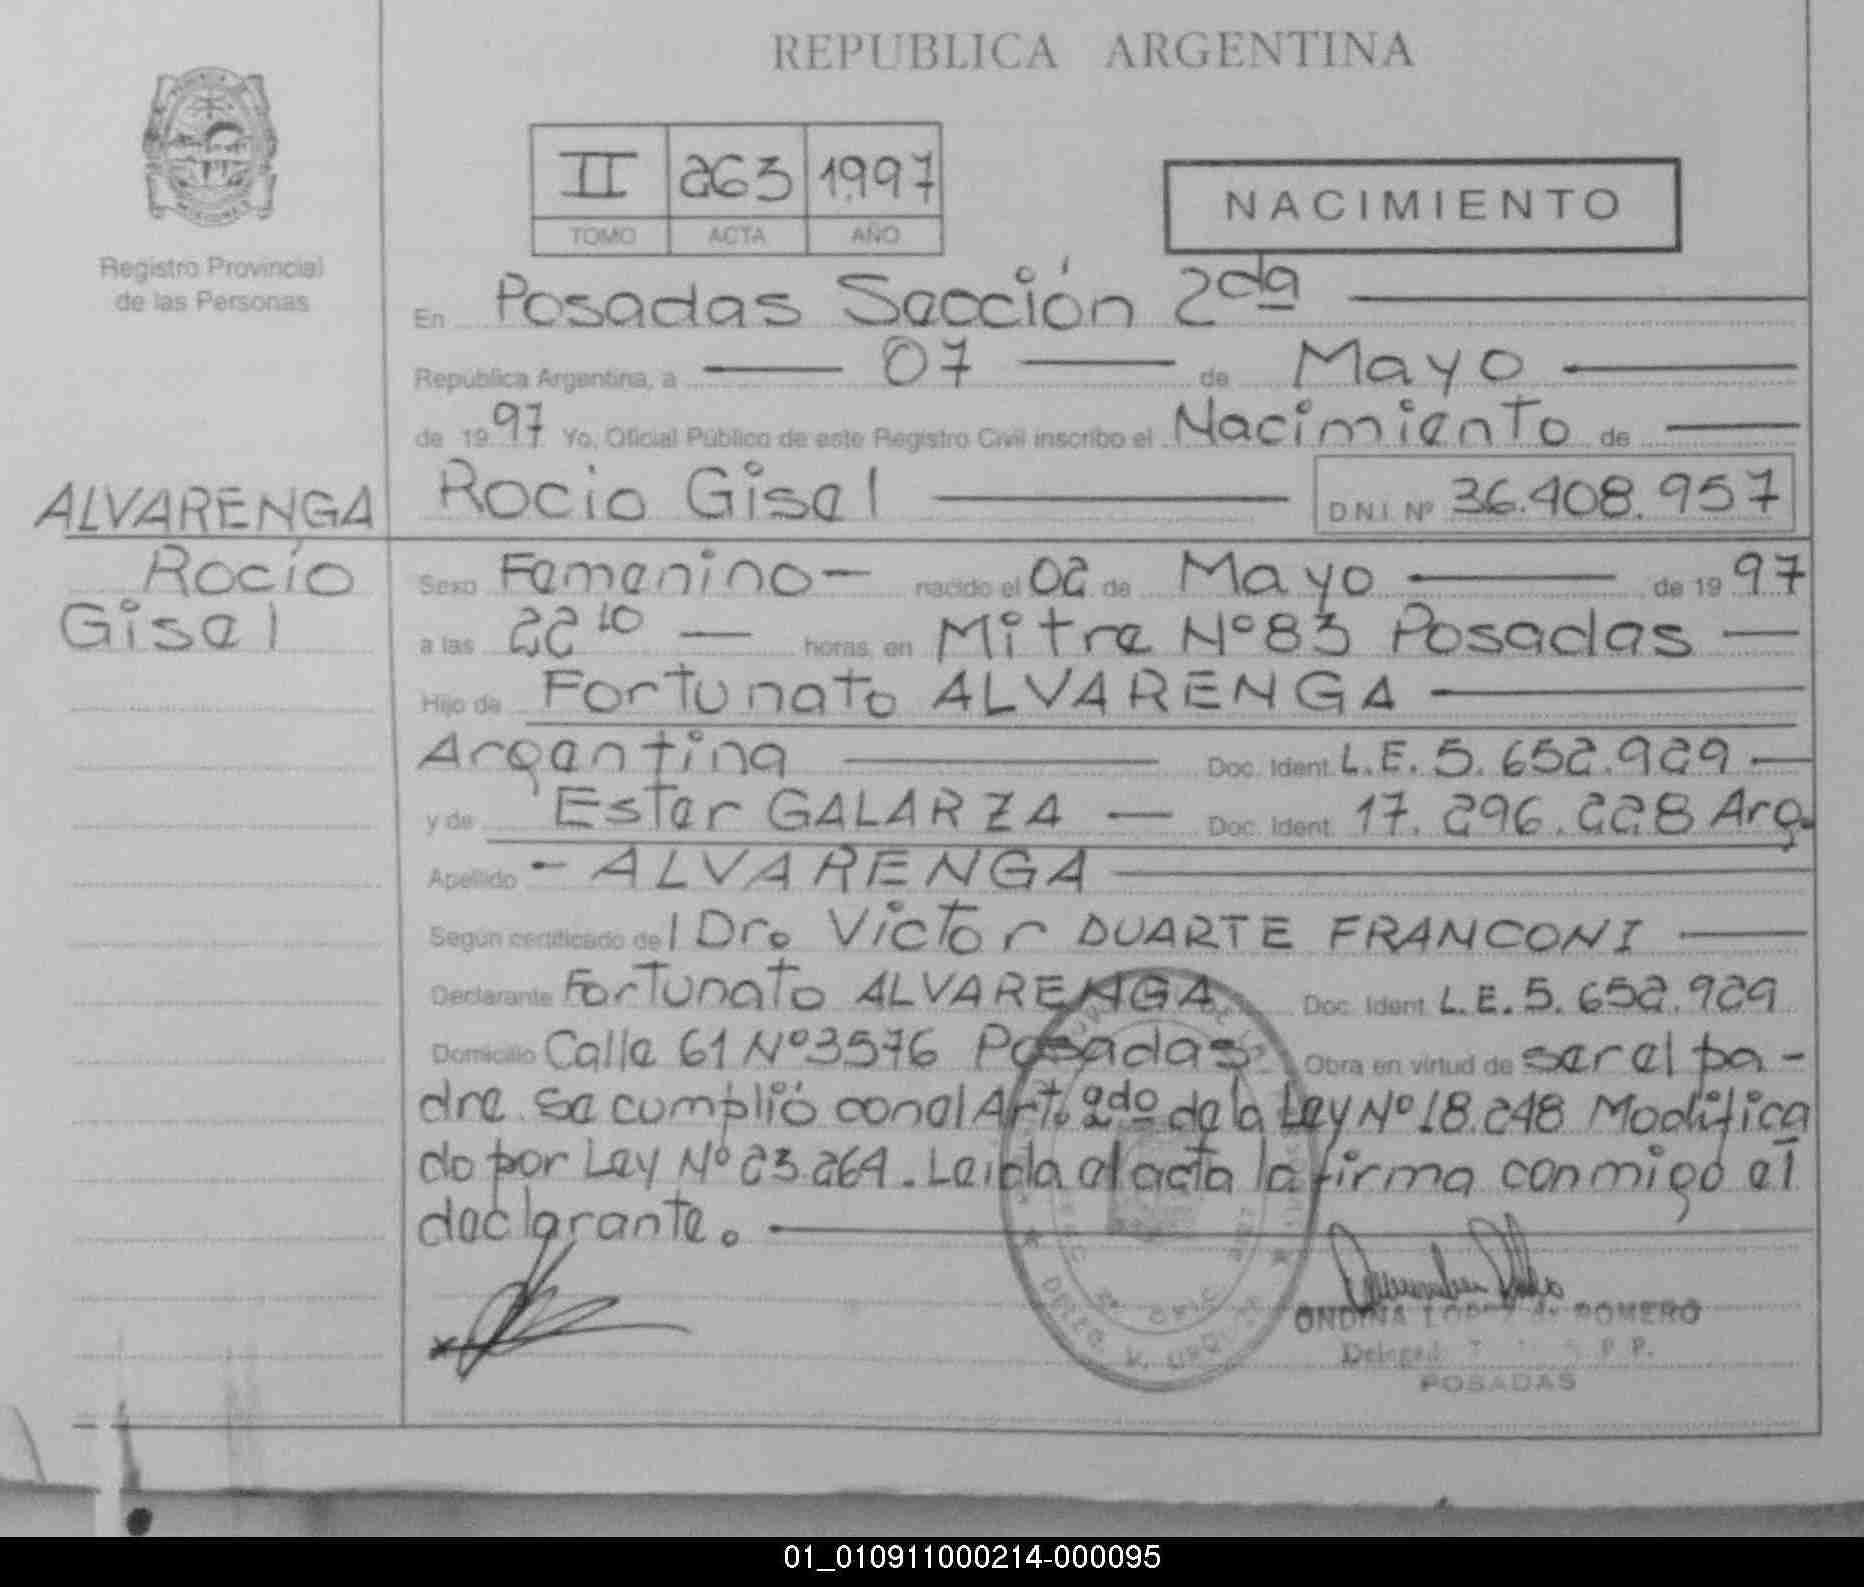 REPUBLICA ARGENTINA
II 263 1997
TOMO ACTA AÑO
NACIMIENTO
Registro Provincial
de las Personas
En Posadas Sección 2da
República Argentina, a 07 de Mayo
de 1997 Yo, Oficial Público de este Registro Civil inscribo el Nacimiento de
Rocio Gisel D.N.I. Nº 36.408.957
ALVARENGA
Rocío
Gisel
Sexo Femenino nacido el 02 de Mayo de 1997
a las 22 10 horas, en Mitre Nº 83 Posadas
Hijo de Fortunato ALVARENGA
Argentina Doc. Ident. L.E. 5.652.929
y de Ester GALARZA Doc. Ident. 17.296.228 Arg.
Apellido - ALVARENGA
Según certificado del Dro Victor DUARTE FRANCONI
Declarante Fortunato ALVARENGA Doc. Ident. L.E. 5.652.929
Domicilio Calle 61 Nº 3576 Posadas Obra en virtud de ser el pa-
dre. Se cumplió con el Art. 2do de la Ley Nº 18.248 Modifica
do por Ley Nº 23.264. Leida el acta la firma conmigo el
declarante.
ONDINA LOPEZ de ROMERO
POSADAS
01_010911000214-000095